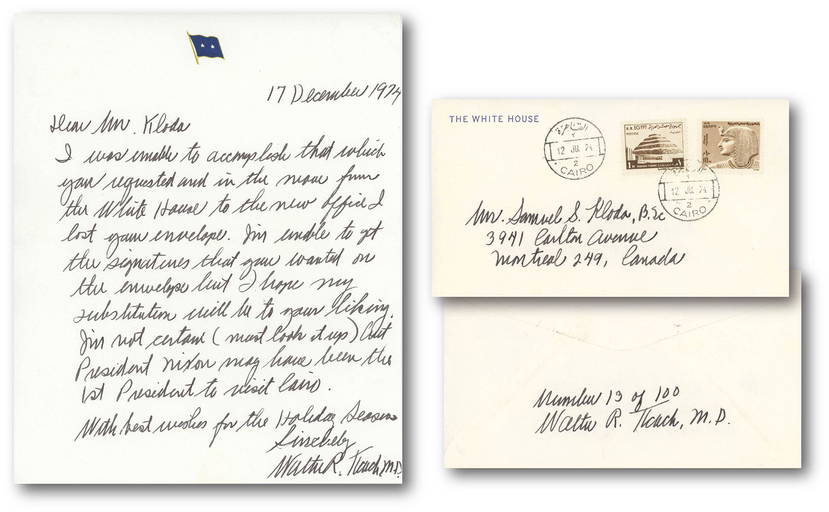 17 December 1974
Dear Mr. Kloda
I was unable to accomplish that which
you requested and in the move from
the White House to the new office I
lost your envelope. I'm unable to get
the signatures that you wanted on
the envelope but I hope my
substitution will be to your liking.
I'm not certain (must look it up) but
President Nixon may have been the
1st President to visit Cairo.
With best wishes for the Holiday Season
Sincerely
Walter R. Tkach, M.D.
THE WHITE HOUSE
القاهرة
12 JU. 74
2
CAIRO
A.R. EGYPT
12 JU. 74
2
CAIRO
Mr. Samuel S. Kloda, B.Sc
3941 Carlton Avenue
Montreal 249, Canada
Number 13 of 100
Walter R. Tkach, M.D.